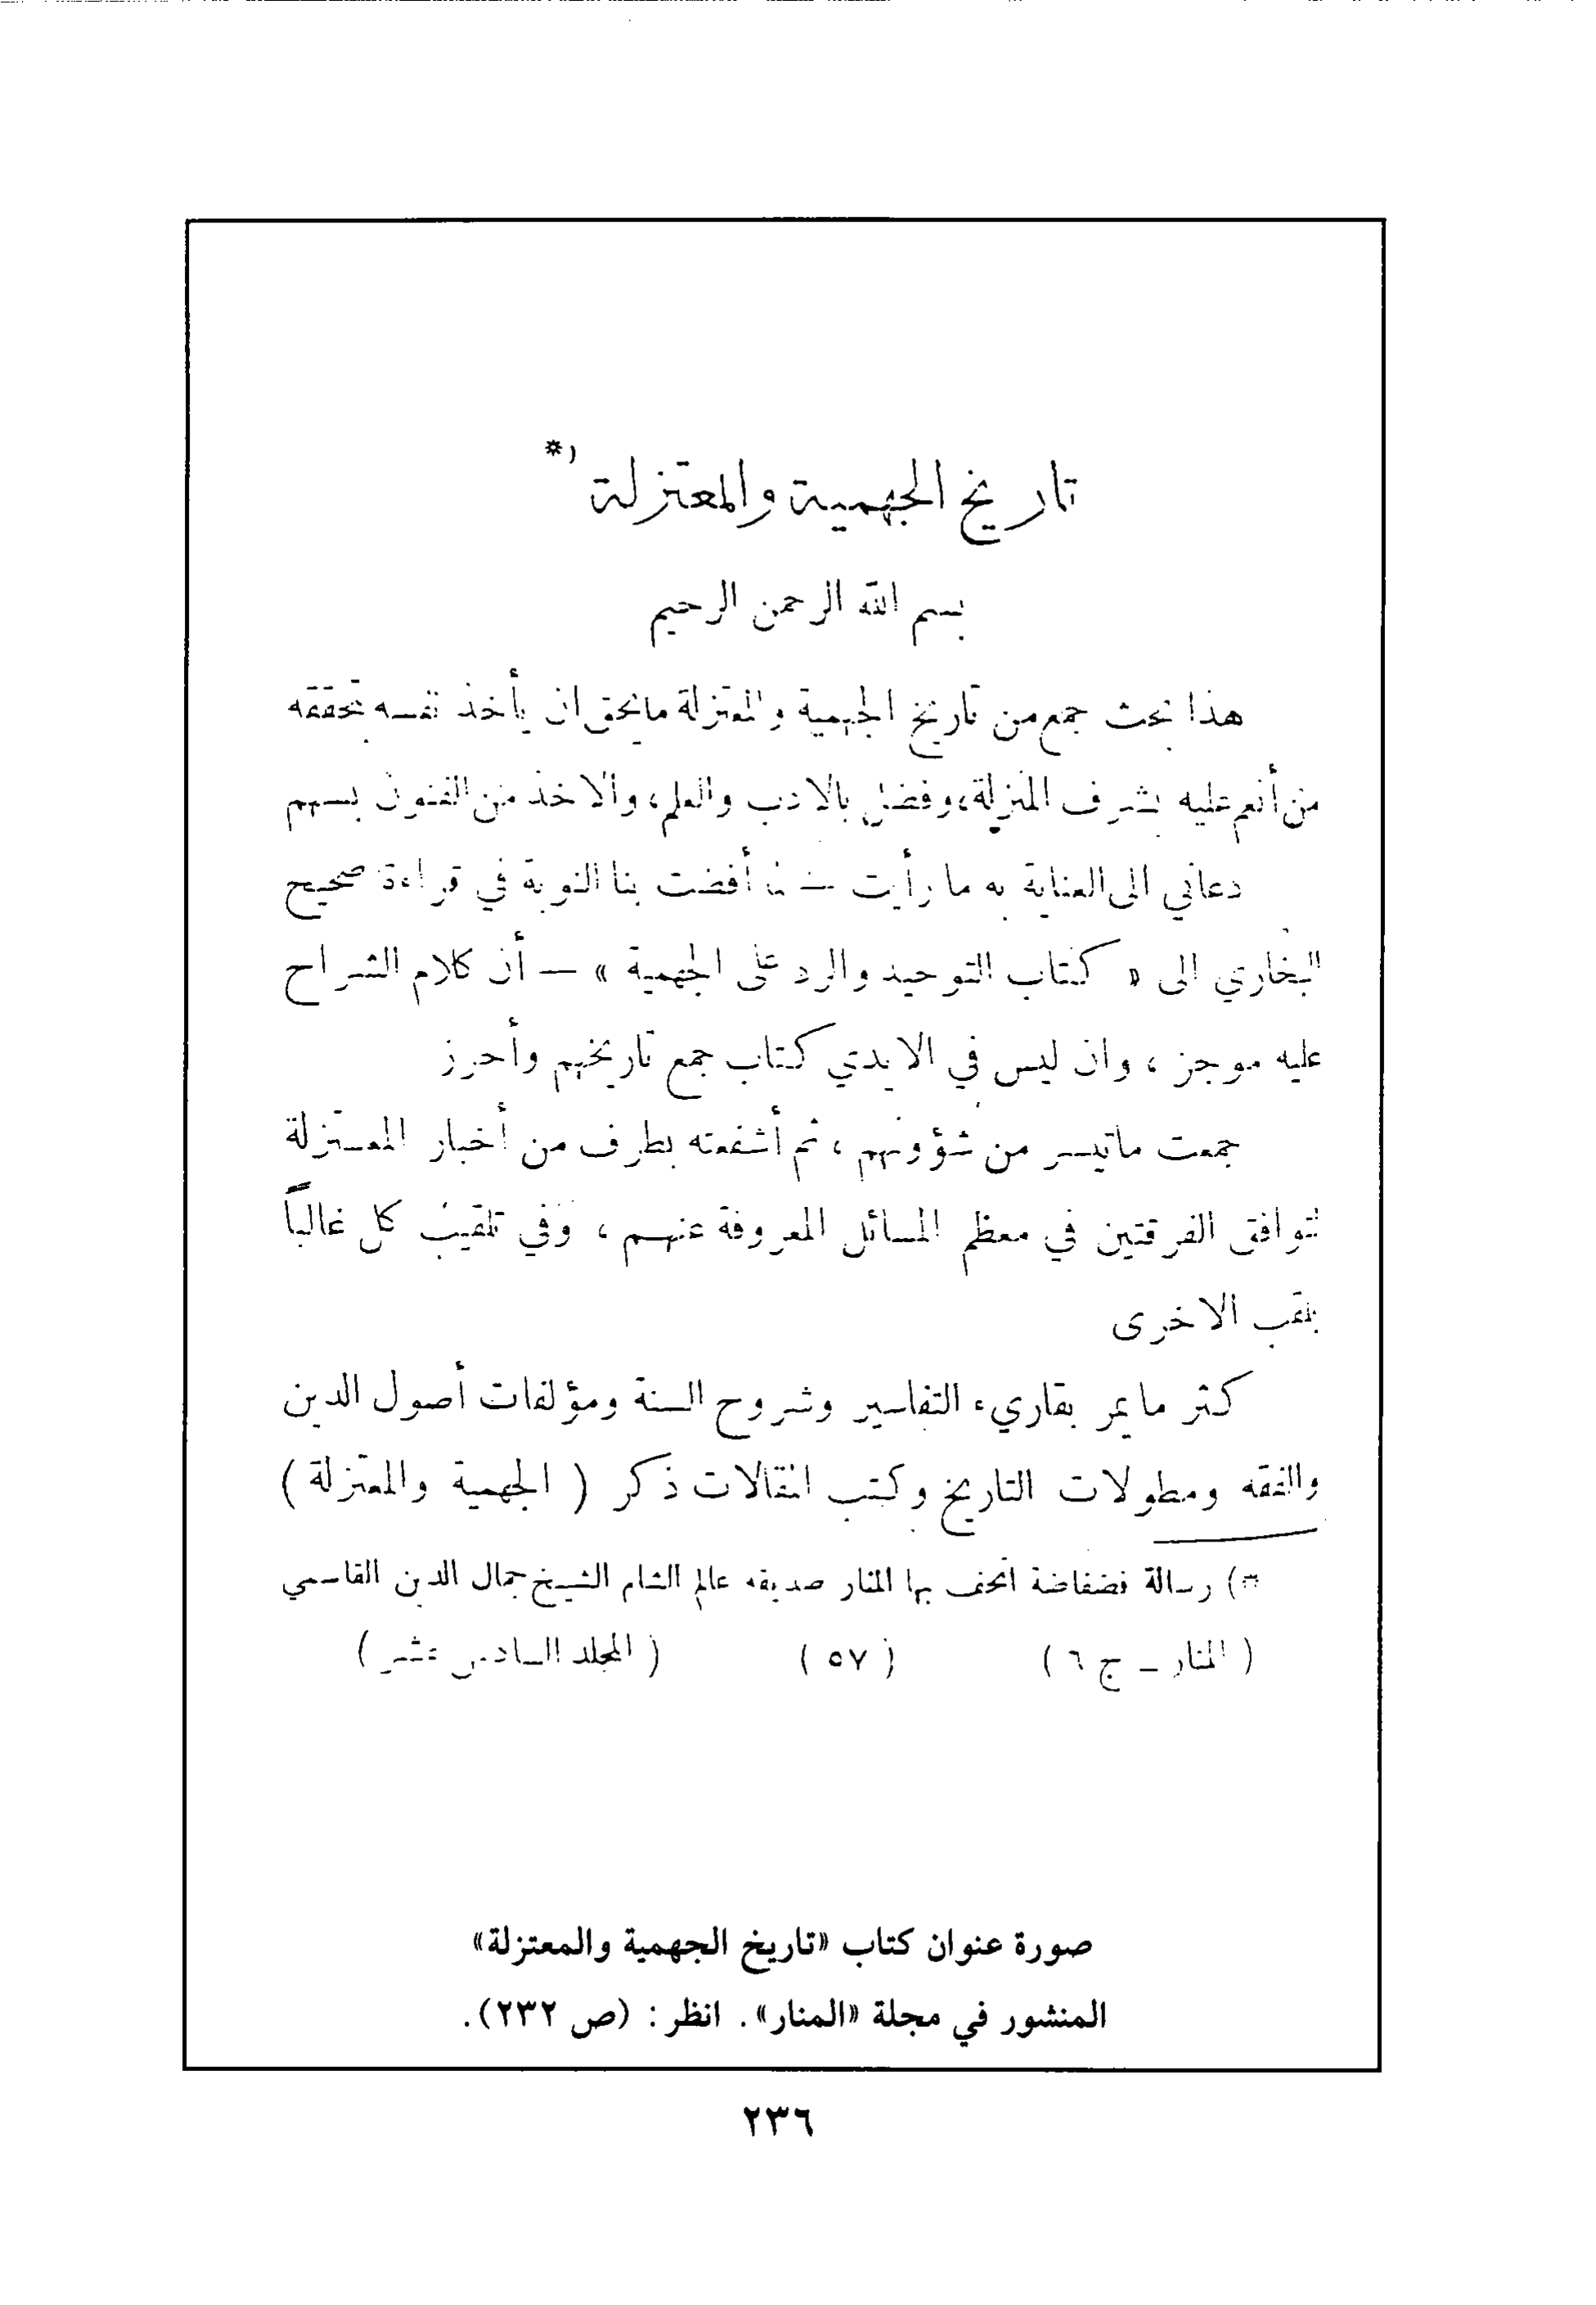 تاريخ الجهمية والمعتزلة (*
بسم الله الرحمن الرحيم
هذا بحث جمع من تاريخ الجهمية والمعتزلة مايحق ان يأخذ نفسه بتحققه
من أنعم عليه بشرف المنزلة، وفضل بالادب والعلم، والاخذ من الفنون بسهم
دعاني الى العناية به ما رأيت — لما أفضت بنا النوبة في قراءة صحيح
البخاري الى « كتاب التوحيد والرد على الجهمية » — أن كلام الشراح
عليه موجز ، وان ليس في الايدي كتاب جمع تاريخهم وأحرز
جمعت ماتيسر من شؤونهم ، ثم أشفعته بطرف من أخبار المعتزلة
لتوافق الفرقتين في معظم المسائل المعروفة عنهم ، وفي تلقيب كل غالباً
بلقب الاخرى
كثر ما يمر بقاريء التفاسير وشروح السنة ومؤلفات أصول الدين
والفقه ومطولات التاريخ وكتب المقالات ذكر ( الجهمية والمعتزلة )
*) رسالة فضفاضة اتحف بها المنار صديقه عالم الشام الشيخ جمال الدين القاسمي
( المنار – ج ٦ ) ( ٥٧ ) ( المجلد السادس عشر )
صورة عنوان كتاب «تاريخ الجهمية والمعتزلة»
المنشور في مجلة «المنار». انظر: (ص ٢٣٢).
٢٣٦